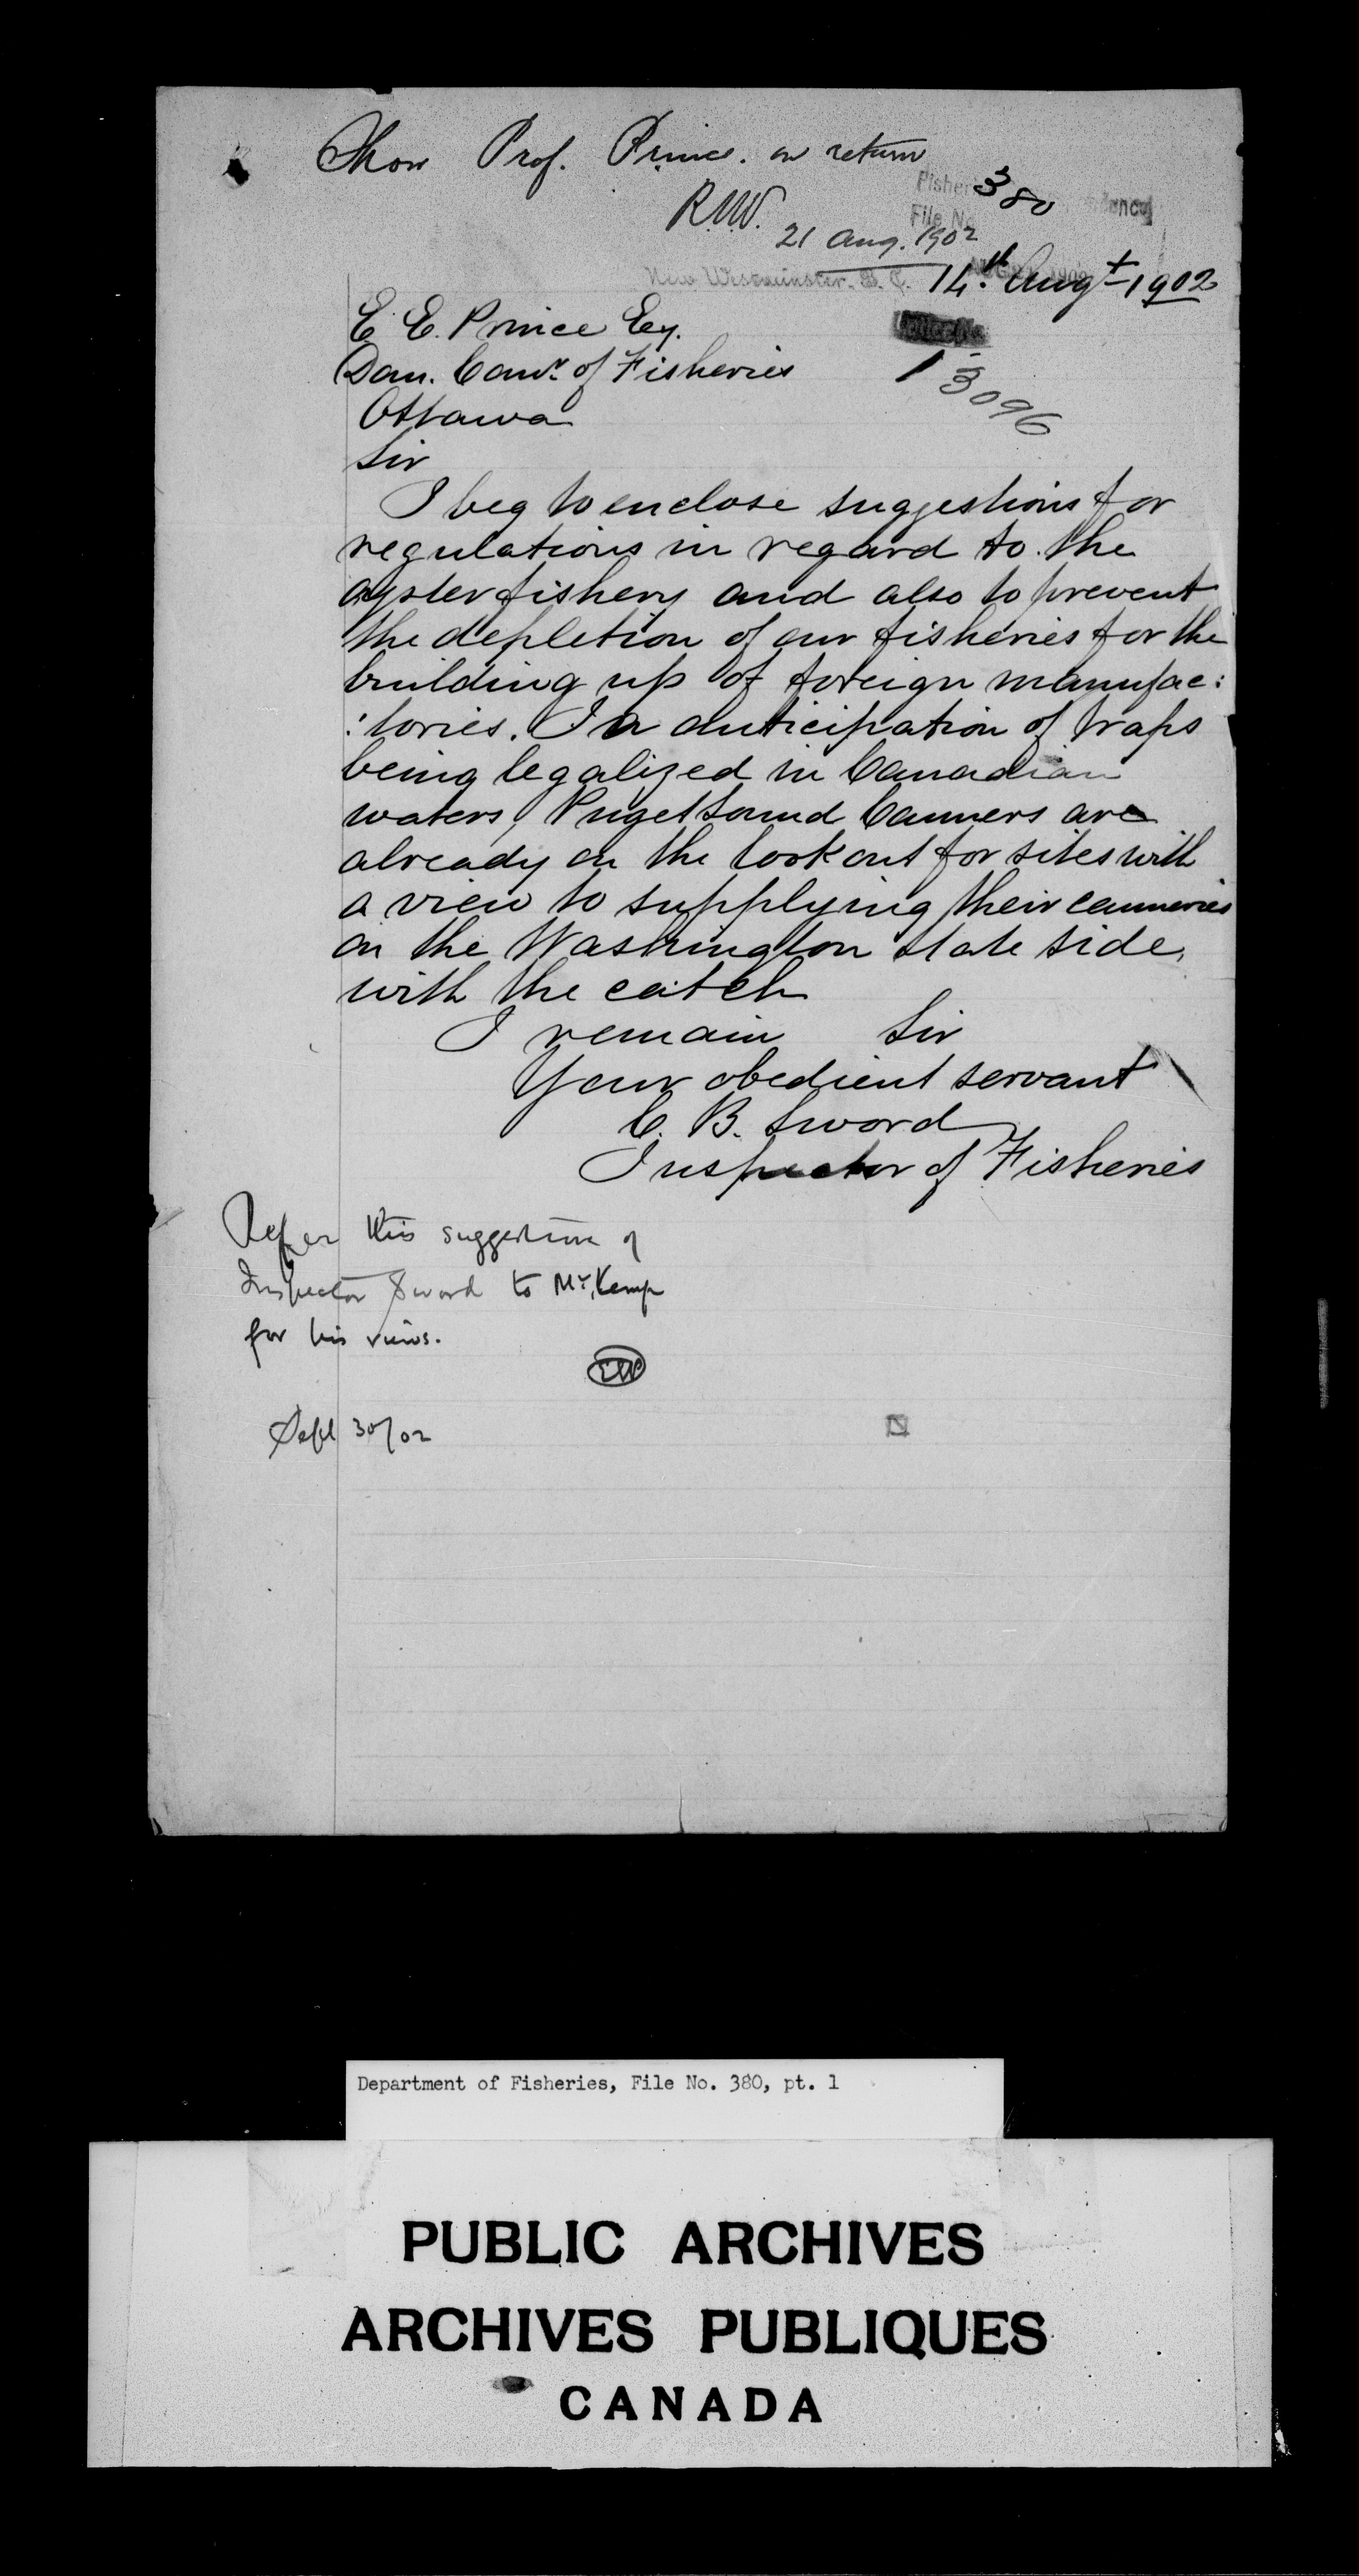 Show Prof. Prince. on return
R.N.V.
21 Aug. 1902
380
File No
New Westminster, B. C. 14th Augt 1902
E. E. Prince Esq.
Dom. Comr. of Fisheries
13096
Ottawa
Sir
I beg to enclose suggestions for
regulations in regard to the
oyster fishery and also to prevent
the depletion of our fisheries for the
building up of foreign manufac:
:tories. In anticipation of traps
being legalized in Canadian
waters, Puget Sound Canners are
already on the look out for sites with
a view to supplying their canneries
on the Washington State side,
with the catch
I remain Sir
Your obedient servant
C. B. Sword
Inspector of Fisheries
Refer this suggestion of
Inspector Sword to Mr. Kemp
for his views.
EEP
Sept 30/02
Department of Fisheries, File No. 380, pt. 1
PUBLIC ARCHIVES
ARCHIVES PUBLIQUES
CANADA